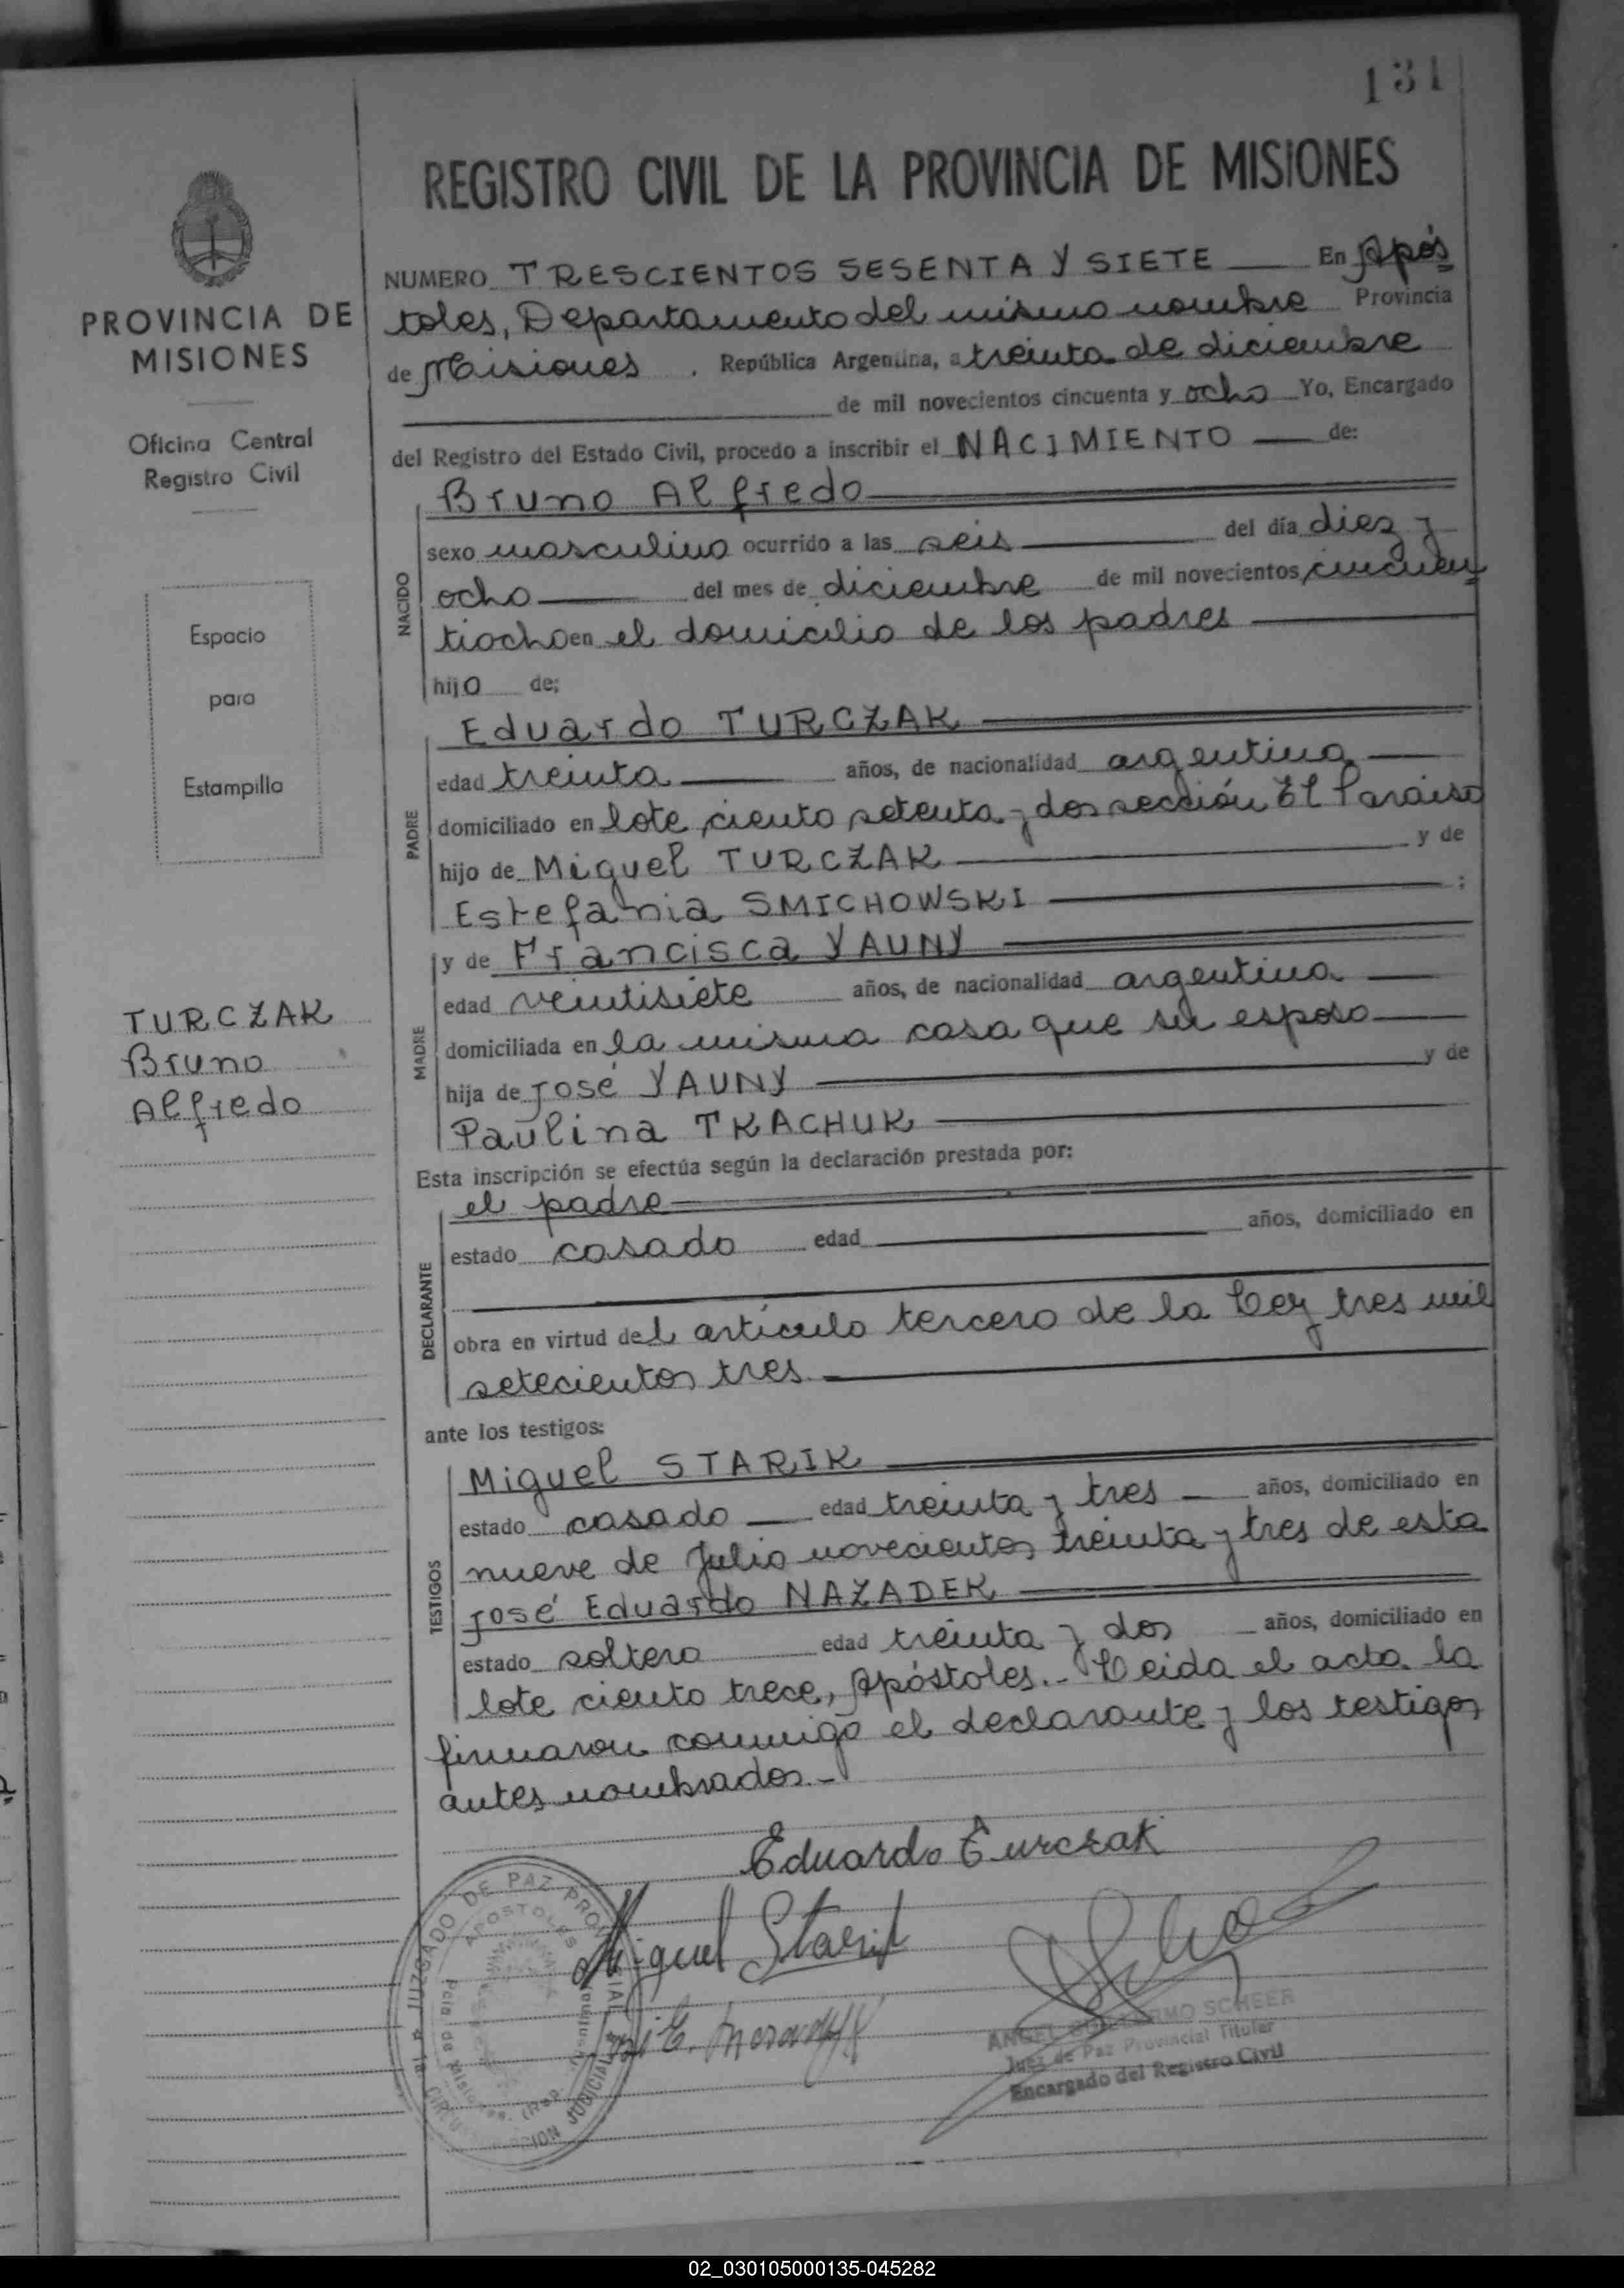 131
REGISTRO CIVIL DE LA PROVINCIA DE MISIONES
PROVINCIA DE
MISIONES
Oficina Central
Registro Civil
Espacio
para
Estampilla
TURCZAK
Bruno
Alfredo
NUMERO TRESCIENTOS SESENTA Y SIETE En Após
toles, Departamento del mismo nombre Provincia
de Misiones . República Argentina, a treinta de diciembre
de mil novecientos cincuenta y ocho Yo, Encargado
del Registro del Estado Civil, procedo a inscribir el NACIMIENTO de:
NACIDO
Bruno Alfredo
sexo masculino ocurrido a las seis del día diez y
ocho del mes de diciembre de mil novecientos cincuen
tiocho en el domicilio de los padres
hijo de;
PADRE
Eduardo TURCZAK
edad treinta años, de nacionalidad argentina
domiciliado en lote ciento setenta y dos sección El Paraiso
hijo de Miguel TURCZAK y de
Estefania SMICHOWSKI ;
MADRE
y de Francisca YAUNY
edad veintisiete años, de nacionalidad argentina
domiciliada en la misma casa que su esposo
hija de José YAUNY y de
Paulina TKACHUK
Esta inscripción se efectúa según la declaración prestada por:
DECLARANTE
el padre
estado casado edad años, domiciliado en
obra en virtud del artículo tercero de la Ley tres mil
setecientos tres
ante los testigos:
TESTIGOS
Miguel STARIK
estado casado edad treinta y tres años, domiciliado en
nueve de Julio novecientos treinta y tres de esta
José Eduardo NAZADEK
estado soltero edad treinta y dos años, domiciliado en
lote ciento trece, Apóstoles.- Leida el acta la
firmaron conmigo el declarante y los testigos
antes nombrados.-
Eduardo Turczak
Miguel Starik
JUZGADO DE PAZ PROVINCIAL
APOSTOLES
ANGEL GUILLERMO SCHEER
Juez de Paz Provincial Titular
Encargado del Registro Civil
02_030105000135-045282